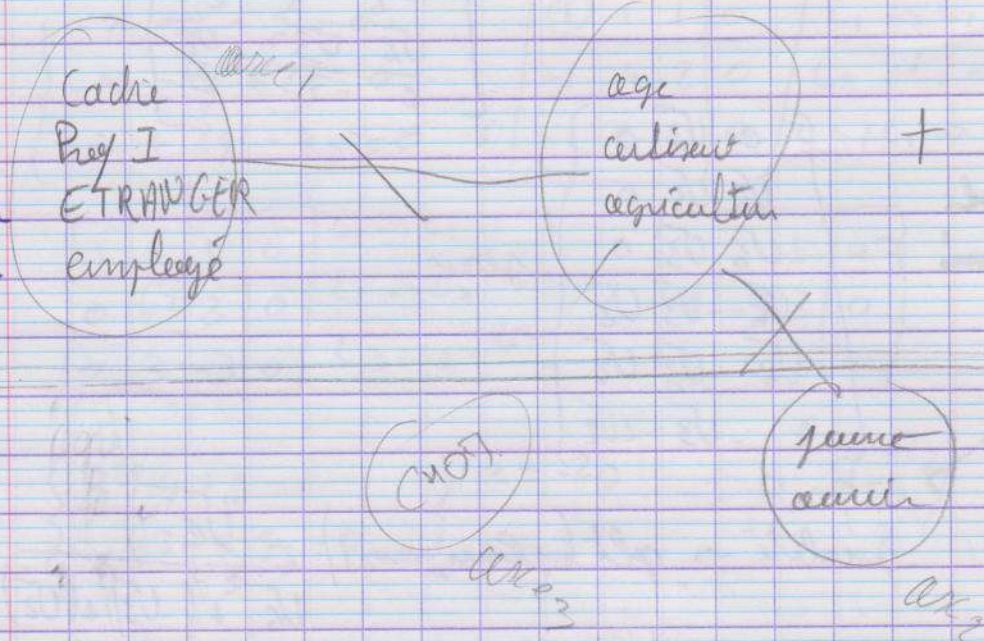 axe 1
Cadre
Prof I
ETRANGER
employé
age
artisent
agriculteur
+
CHOM
axe 3
jeune
ouvrier
axe